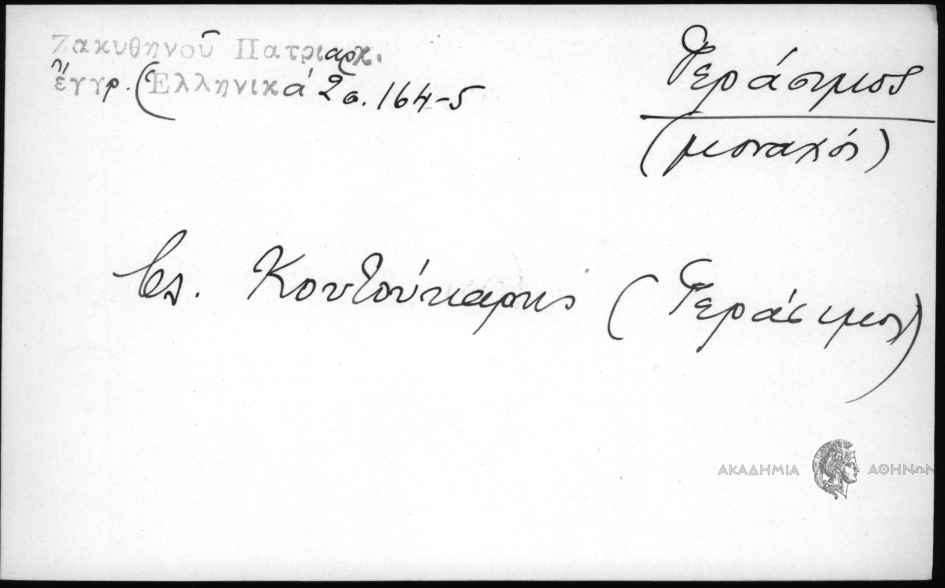 Ζακυθηνοῦ Πατριαρχ.
ἔγγρ. (Ἑλληνικά 2 σ. 164-5
Γεράσιμος
(μοναχός)
βλ. Κουτούκαρης (Γεράσιμος)
ΑΚΑΔΗΜΙΑ ΑΘΗΝΩΝ